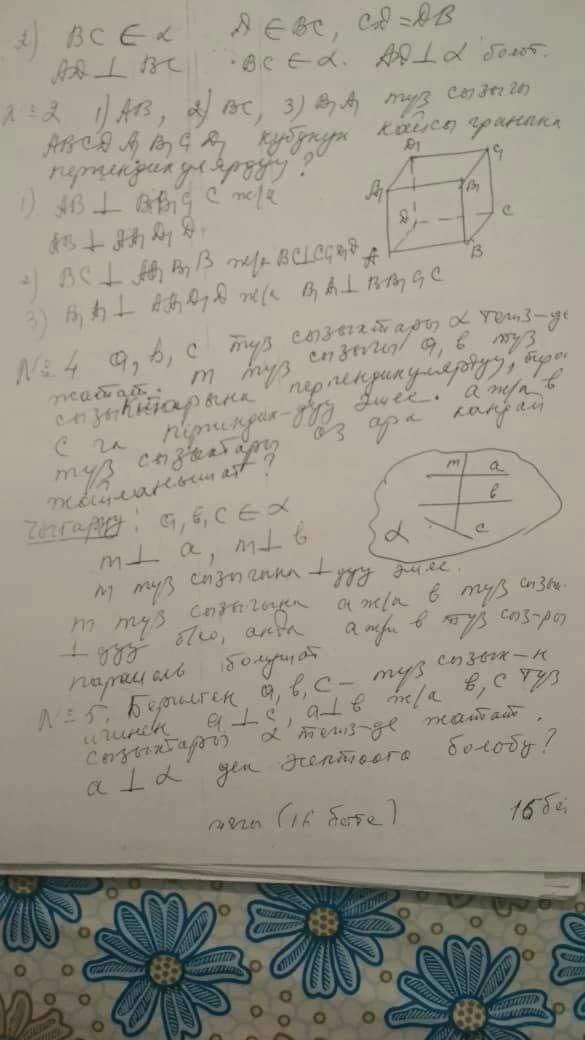 2) BC ∈ α   D ∈ BC, CD = DB
AD ⊥ BC   BC ∈ α. AD ⊥ α болот.
№ 2 1) AB, 2) BC, 3) B₁A₁ түз сызыгы
ABCD A₁B₁C₁D₁ кубунун кайсы гранына
перпендикулярдуу?
1) AB ⊥ BB₁C₁C ж/а
AB ⊥ AA₁D₁D.
2) BC ⊥ AA₁B₁B ж/а BC ⊥ CC₁D₁D
3) B₁A₁ ⊥ AA₁D₁D ж/а B₁A₁ ⊥ BB₁C₁C
D₁ C₁
A₁ B₁
D C
A B
№ 4. a, b, c түз сызыктары α тегиз-де
жатат. m түз сызыгы a, b түз
сызыктарына перпендикулярдуу, бирок
c га перпендик-дуу эмес. a ж/а b
түз сызыктары өз ара кандай
жайланышат?
m a
b
α c
Чыгаруу: a, b, c ∈ α
m ⊥ a, m ⊥ b
m түз сызыгына ⊥ дуу эмес.
m түз сызыгына a ж/а b түз сызык
⊥ дуу анда a ж/а b түз сыз-ры
болушат
№ 5. Берилген a, b, c – түз сызык-н
ичинен a ⊥ c, a ⊥ b ж/а b, c түз
сызыктары α тегиз-де жатат.
a ⊥ α деп эсептөөгө болобу?
(16 бета)
16 бе